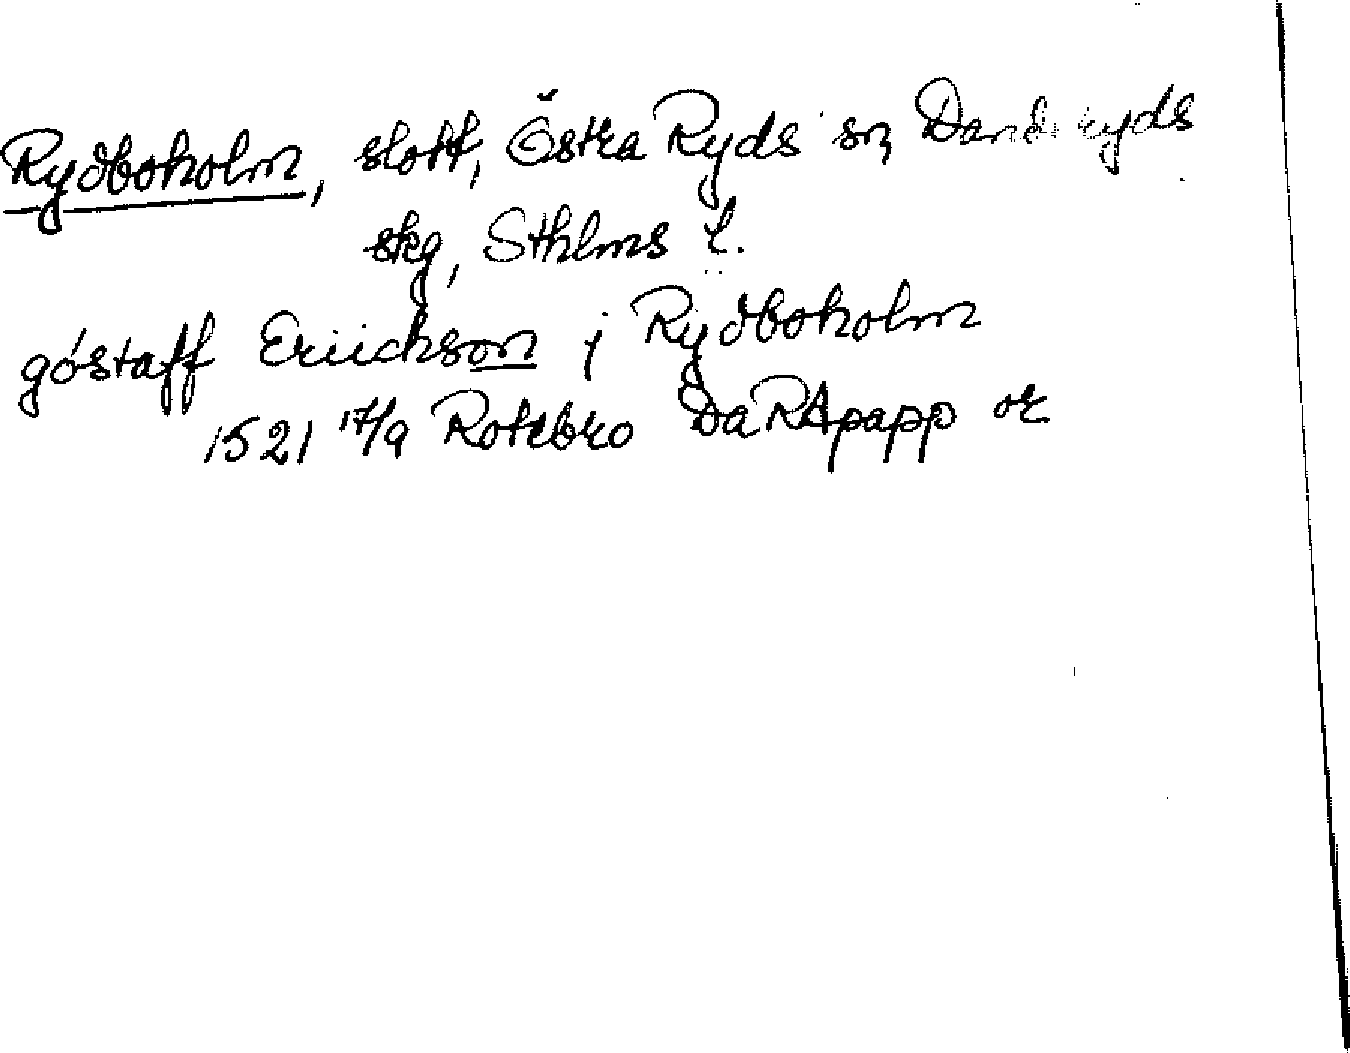 Rydboholm, slott, Östra Ryds sn, Danderyds
skg, Sthlms l.
góstaff Eriickson j Rydboholm
1521 17/9 Rotebro DaRApapp or